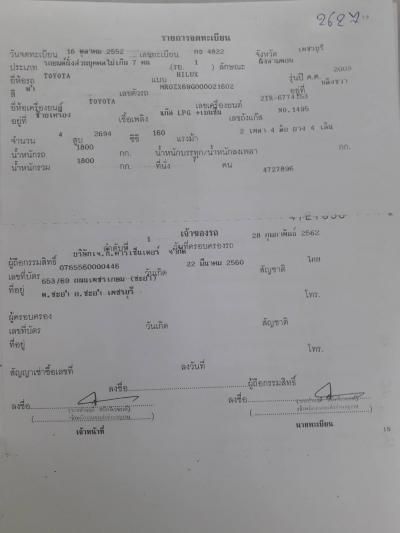 2627
รายการจดทะเบียน
วันจดทะเบียน 16 ตุลาคม 2552 เลขทะเบียน กง 4822 จังหวัด เพชรบุรี
ประเภท รถยนต์นั่งส่วนบุคคลไม่เกิน 7 คน (รย. 1 ) ลักษณะ นั่งสามตอน
ยี่ห้อรถ TOYOTA แบบ HILUX รุ่นปี ค.ศ. 2009
สี ฟ้า เลขตัวรถ MR0ZX69G000021602 อยู่ที่
ยี่ห้อเครื่องยนต์ TOYOTA เลขเครื่องยนต์ 2TR-6774153
อยู่ที่ ซ้ายเครื่อง เชื้อเพลิง แก๊ส LPG +เบนซิน เลขถังแก๊ส NO.1495
จำนวน 4 สูบ 2694 ซีซี 160 แรงม้า 2 เพลา 4 ล้อ ยาง 4 เส้น
น้ำหนักรถ 1800 กก. น้ำหนักบรรทุก/น้ำหนักลงเพลา กก.
น้ำหนักรวม 1800 กก. ที่นั่ง คน 4727896
เจ้าของรถ
ลำดับที่ 1 วันที่ครอบครองรถ 28 กุมภาพันธ์ 2562
ผู้ถือกรรมสิทธิ์
เลขที่บัตร 0765560000446 วันเกิด 22 มีนาคม 2560 สัญชาติ ไทย
ที่อยู่ 653/69 ถนนเพชรเกษม (ชะอำ)
ต.ชะอำ อ.ชะอำ เพชรบุรี โทร.
ผู้ครอบครอง
เลขที่บัตร วันเกิด สัญชาติ
ที่อยู่ โทร.
สัญญาเช่าซื้อเลขที่ ลงวันที่
ลงชื่อ ผู้ถือกรรมสิทธิ์
ลงชื่อ ลงชื่อ
เจ้าหน้าที่ นายทะเบียน
18